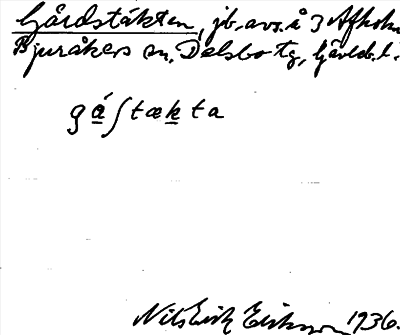 Gårdstäkten, jb. avs. å 3 Afholm
Bjuråkers sn, Delsbo tg, Gävleb. l.
gá̱ʃtæḵta
Nils Erik Eriksson 1936.